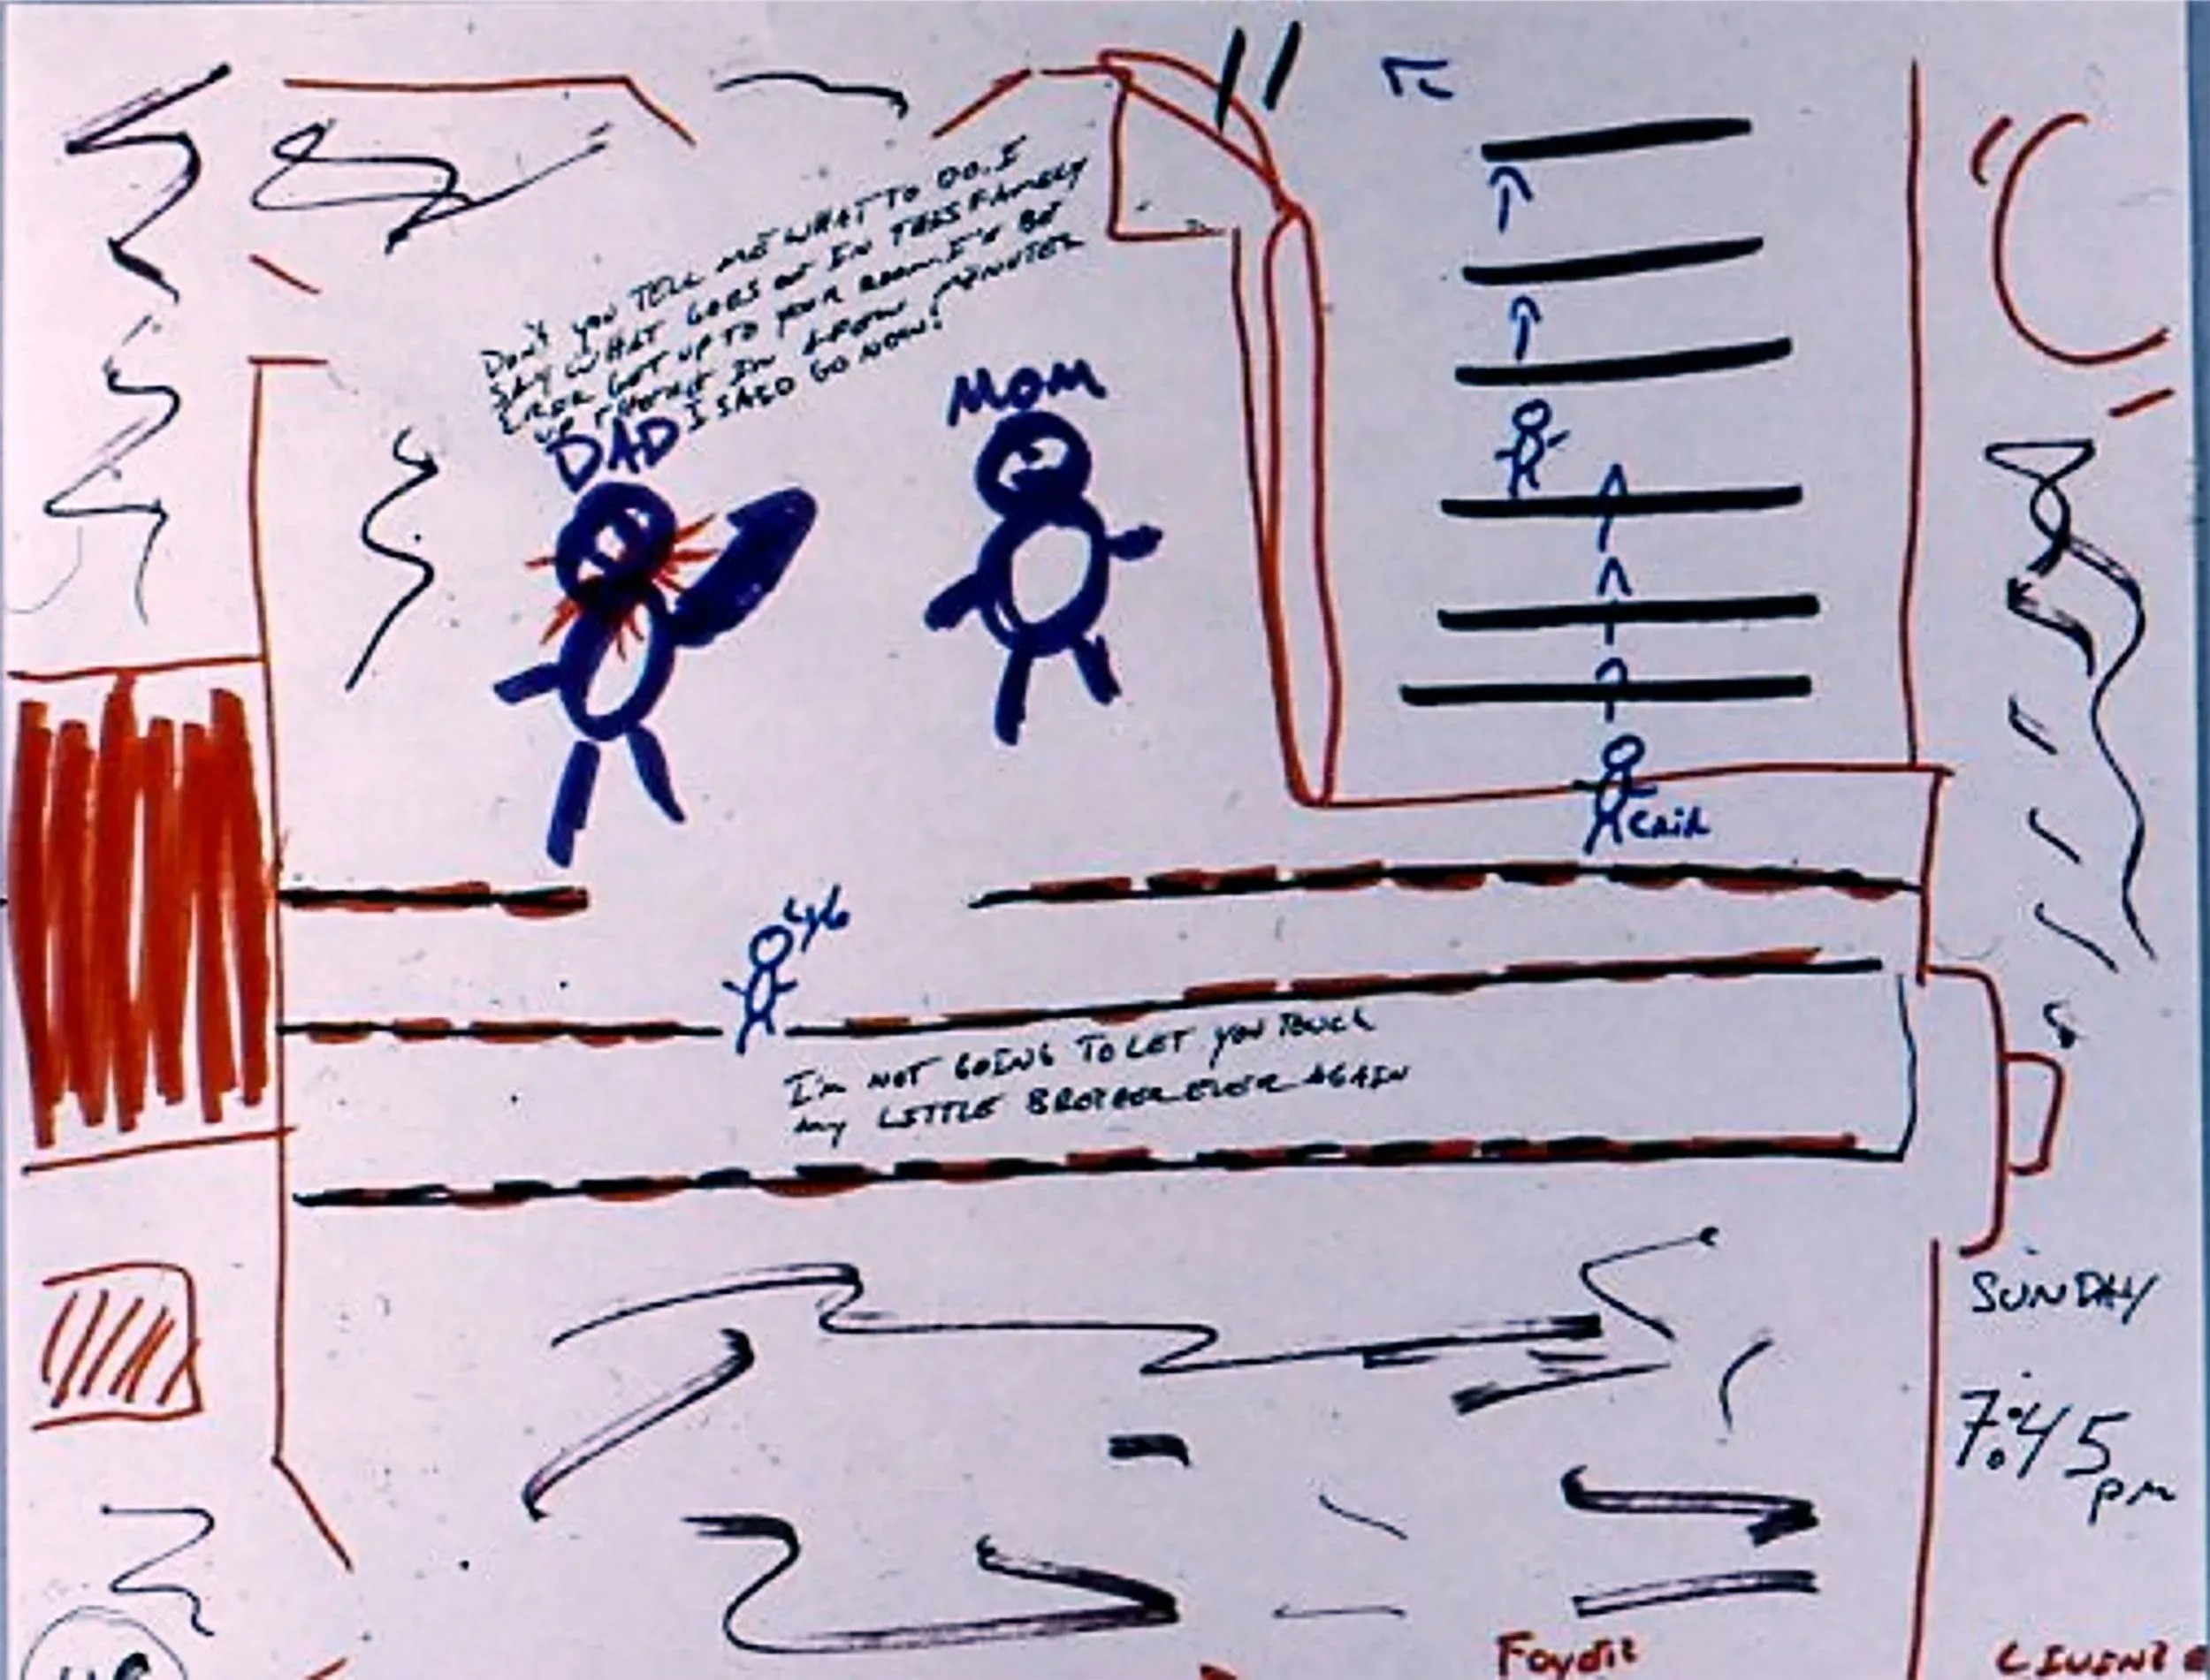 DON'T YOU TELL ME WHAT TO DO. I
SAY WHAT GOES ON IN THIS FAMILY
GET UP TO YOUR ROOM I'LL BE
UP THERE IN A FEW MINUTES
I SAID GO NOW!
DAD
MOM
I'm NOT GOING TO LET YOU TOUCH
my LITTLE BROTHER EVER AGAIN
SUNDAY
7:45
pm
Foydit